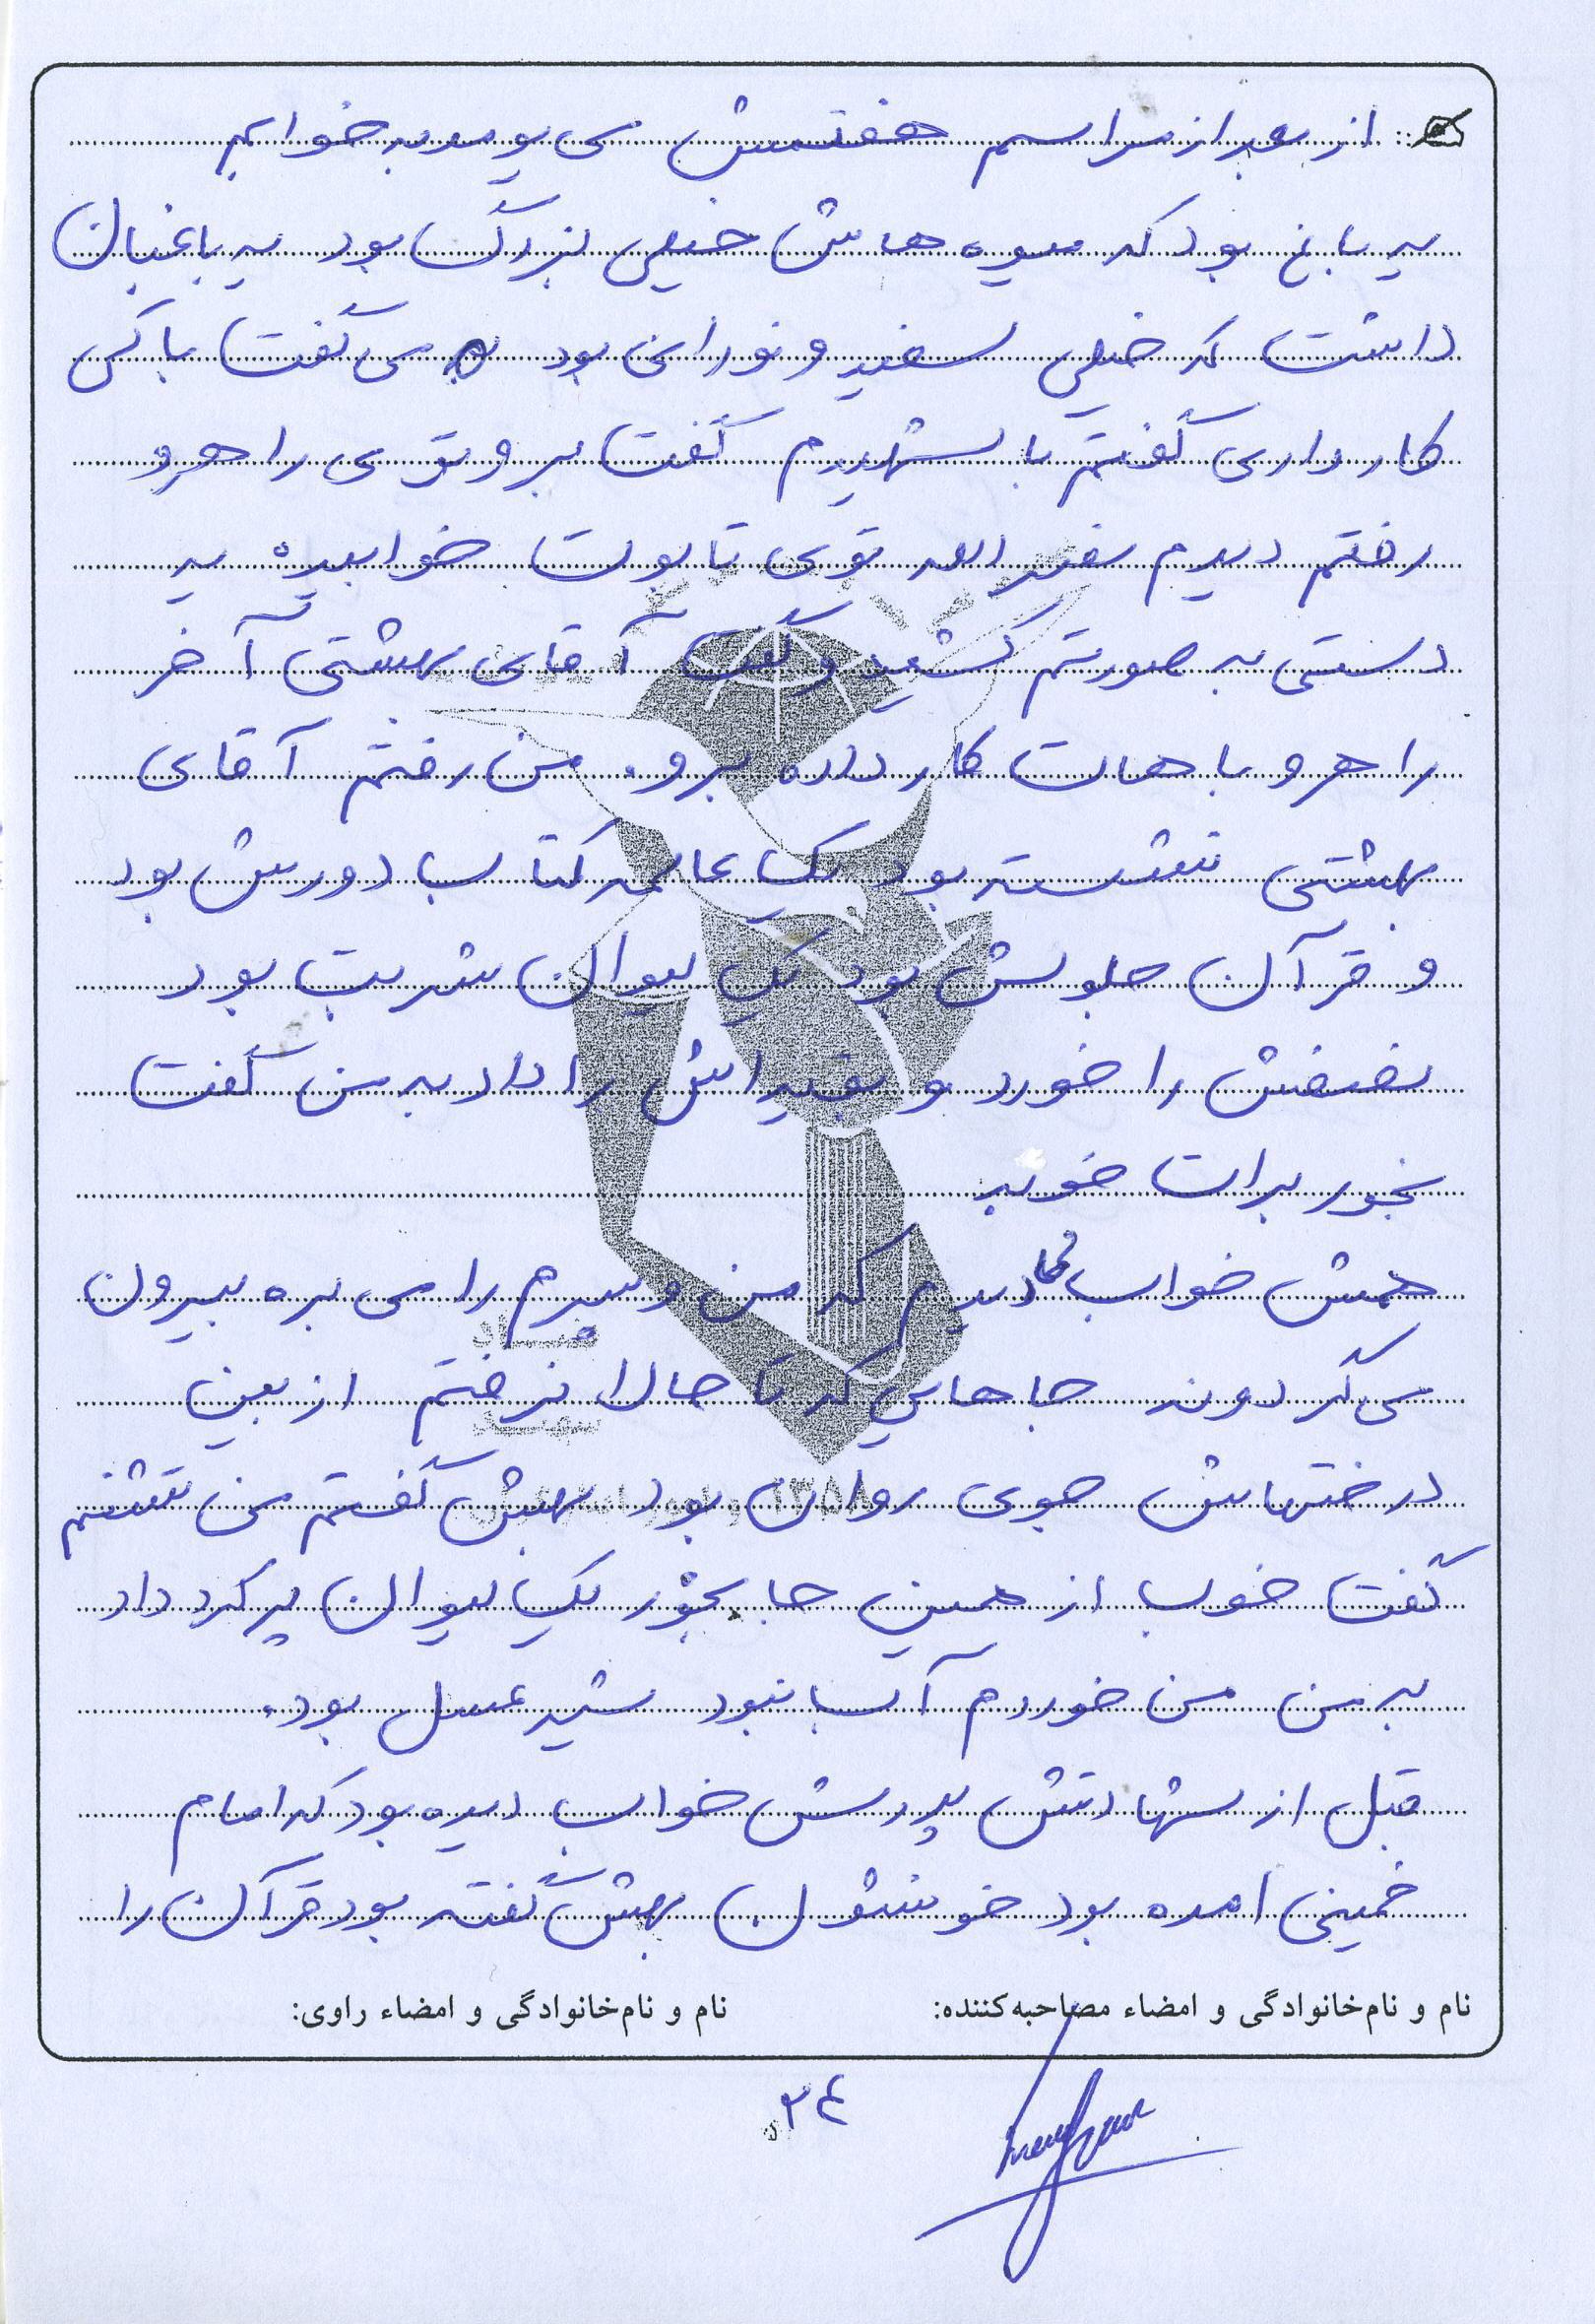 از بعد از مراسم هفتمش می یومد به خوابم
یه باغ بود که میوه هاش خیلی بزرگ بود یه باغبان
داشت که خیلی سفید و نورانی بود می گفت با کی
کار داری گفتم با شهیدم گفت برو توی راهرو
رفتم دیدم توی تابوت خوابیده یه
دستی به صورتم کشید و گفت آقای بهشتی آخر
راهرو باهات کار داره برو. من رفتم آقای
بهشتی نشسته بود یک عالمه کتاب دورش بود
و قرآن جلوش بود یک لیوان شربت بود
نصفش را خورد و بقیه اش را داد به من گفت
بخور برات خوبه
همش خواب دیدم که من و پسرم را می بره بیرون
می گردونه جاهایی که تا حالا نرفتم از بین
درختهاش جوی روان بود بهش گفتم من تشنم
گفت خوب از همین جا بخور یک لیوان پر کرد داد
به من من خوردم آب نبود شیر عسل بود.
قبل از شهادتش پدرش خواب دیده بود که امام
خمینی امده بود خونشون بهش گفته بود قرآن را
نام و نام‌خانوادگی و امضاء مصاحبه‌کننده:
نام و نام‌خانوادگی و امضاء راوی:
٣٤